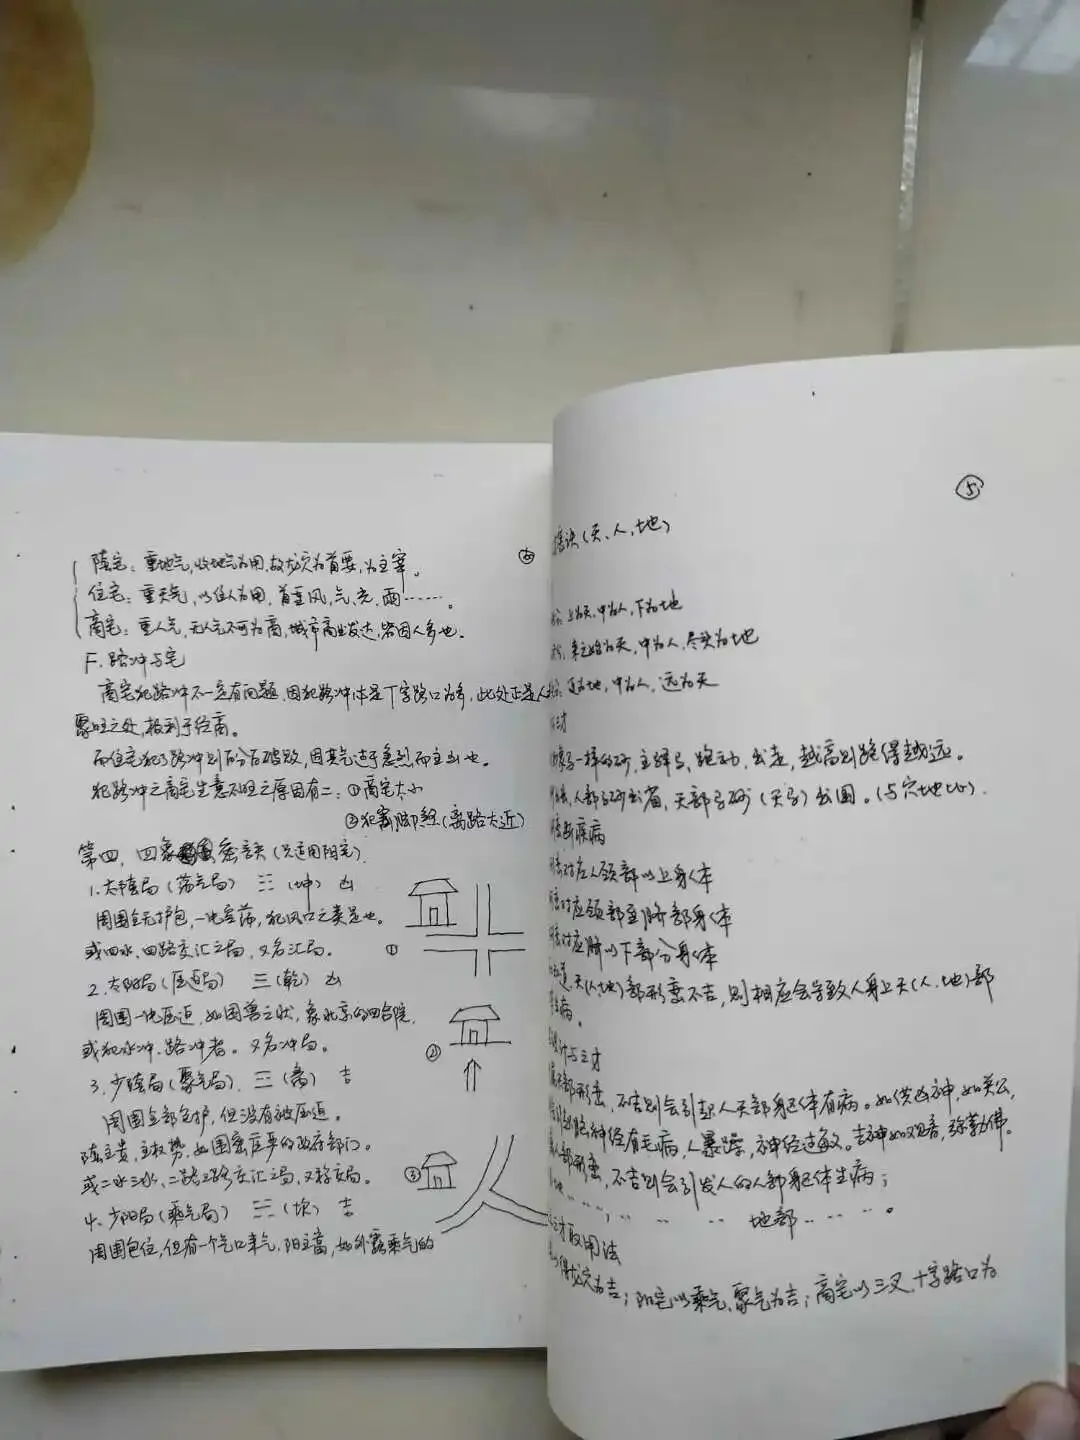 ④
阴宅：重地气，收地气为用，故龙穴为首要，为主宰。
住宅：重天气，以住人为用，首重风，气，光，雨……。
商宅：重人气，无人气不可为商，城市商业发达，皆因人多也。
F．路冲与宅
商宅犯路冲不一定有问题，因犯路冲体是丁字路口为多，此处正是人
聚旺之处，极利于经商。
而住宅犯了路冲则百分百破败，因其气过于急烈而主凶也。
犯路冲之商宅生意不旺之原因有二：①商宅太小
②犯割脚煞（离路太近）
第四，四象 密诀（只适用阳宅）．
1．太阴局（荡气局） ☷（坤） 凶
周围全无护包，一片空荡，犯风口之类是也。
或四水，四路交汇之局，又名汇局。
①
2．太阳局（压迫局） ☰（乾） 凶
周围一片压迫，如困兽之状，象北京的四合院，
或犯水冲，路冲者。又名冲局。
②
3．少阴局（聚气局）． （离） 吉
周围全部包护，但没有被压迫。
阴主贵，主权势，如围墙 的政府部门。
或二水三水，二路三路交汇之局，又称交局。
③
4．少阳局（乘气局） （坎） 吉
周围包住，但有一个气口来气，阳主富，如 乘气的
⑤
诀（天、人、地）
上为天，中为人，下为地
来之始为天，中为人，尽头为地
近为地，中为人，远为天
一样的砂，主 ，跑动，出走，越高则跑得越远。
人部 砂出省，天部马砂（天马）出国。（与穴地比）．
断疾病
对应人颈部以上身体
对应颈部至脐部身体
对应脐以下部分身体
天（人、地）部形峦不吉，则相应会导致人身上天（人、地）部
病。
计与三才
部形峦，不吉则会引起人天部身体有病。如供凶神，如关公，
神经有毛病，人暴躁，神经过敏。吉神如观音，弥勒佛。
部形峦，不吉则会引发人的人部身体生病；
地部……。
三才取用法
龙穴为吉；阳宅以乘气，聚气为吉；商宅以三叉，十字路口为